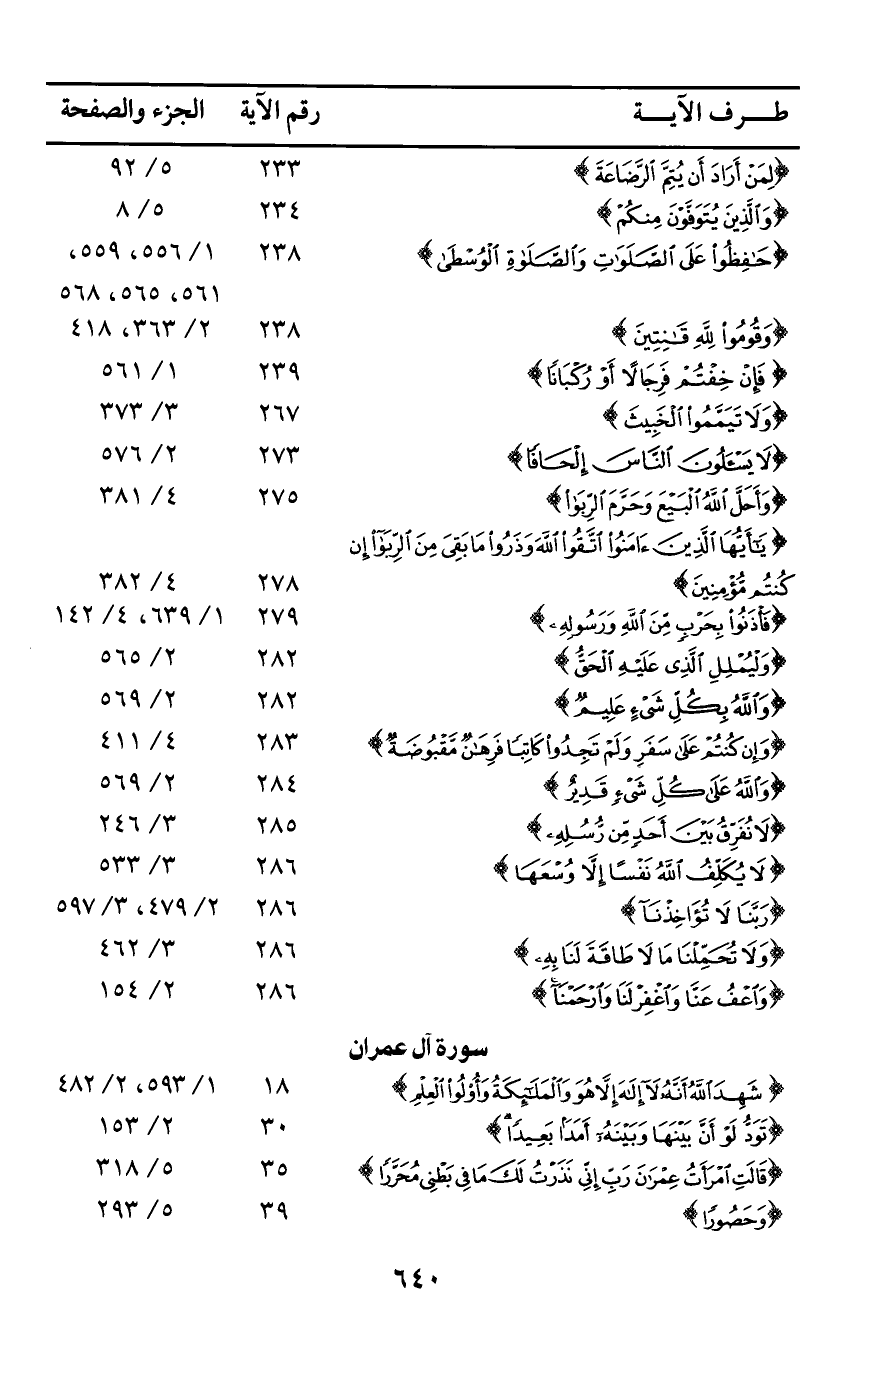 طـــرف الآيـــة رقم الآية الجزء والصفحة
﴿لِمَنْ أَرَادَ أَن يُتِمَّ ٱلرَّضَاعَةَ﴾ ٢٣٣ ٥/ ٩٢
﴿وَٱلَّذِينَ يُتَوَفَّوْنَ مِنكُمْ﴾ ٢٣٤ ٥/ ٨
﴿حَٰفِظُوا۟ عَلَى ٱلصَّلَوَٰتِ وَٱلصَّلَوٰةِ ٱلْوُسْطَىٰ﴾ ٢٣٨ ١/ ٥٥٦، ٥٥٩،
٥٦١، ٥٦٥، ٥٦٨
﴿وَقُومُوا۟ لِلَّهِ قَٰنِتِينَ﴾ ٢٣٨ ٢/ ٣٦٣، ٤١٨
﴿فَإِنْ خِفْتُمْ فَرِجَالًا أَوْ رُكْبَانًا﴾ ٢٣٩ ١/ ٥٦١
﴿وَلَا تَيَمَّمُوا۟ ٱلْخَبِيثَ﴾ ٢٦٧ ٣/ ٣٧٣
﴿لَا يَسْـَٔلُونَ ٱلنَّاسَ إِلْحَافًا﴾ ٢٧٣ ٢/ ٥٧٦
﴿وَأَحَلَّ ٱللَّهُ ٱلْبَيْعَ وَحَرَّمَ ٱلرِّبَوٰا۟﴾ ٢٧٥ ٤/ ٣٨١
﴿يَٰٓأَيُّهَا ٱلَّذِينَ ءَامَنُوا۟ ٱتَّقُوا۟ ٱللَّهَ وَذَرُوا۟ مَا بَقِىَ مِنَ ٱلرِّبَوٰٓا۟ إِن
كُنتُم مُّؤْمِنِينَ﴾ ٢٧٨ ٤/ ٣٨٢
﴿فَأْذَنُوا۟ بِحَرْبٍ مِّنَ ٱللَّهِ وَرَسُولِهِۦ﴾ ٢٧٩ ١/ ٦٣٩، ٤/ ١٤٢
﴿وَلْيُمْلِلِ ٱلَّذِى عَلَيْهِ ٱلْحَقُّ﴾ ٢٨٢ ٢/ ٥٦٥
﴿وَٱللَّهُ بِكُلِّ شَىْءٍ عَلِيمٌ﴾ ٢٨٢ ٢/ ٥٦٩
﴿وَإِن كُنتُمْ عَلَىٰ سَفَرٍ وَلَمْ تَجِدُوا۟ كَاتِبًا فَرِهَٰنٌ مَّقْبُوضَةٌ﴾ ٢٨٣ ٤/ ٤١١
﴿وَٱللَّهُ عَلَىٰ كُلِّ شَىْءٍ قَدِيرٌ﴾ ٢٨٤ ٢/ ٥٦٩
﴿لَا نُفَرِّقُ بَيْنَ أَحَدٍ مِّن رُّسُلِهِۦ﴾ ٢٨٥ ٣/ ٢٤٦
﴿لَا يُكَلِّفُ ٱللَّهُ نَفْسًا إِلَّا وُسْعَهَا﴾ ٢٨٦ ٣/ ٥٣٣
﴿رَبَّنَا لَا تُؤَاخِذْنَآ﴾ ٢٨٦ ٢/ ٤٧٩، ٣/ ٥٩٧
﴿وَلَا تُحَمِّلْنَا مَا لَا طَاقَةَ لَنَا بِهِۦ﴾ ٢٨٦ ٣/ ٤٦٢
﴿وَٱعْفُ عَنَّا وَٱغْفِرْ لَنَا وَٱرْحَمْنَآ﴾ ٢٨٦ ٢/ ١٥٤
سورة آل عمران
﴿شَهِدَ ٱللَّهُ أَنَّهُۥ لَآ إِلَٰهَ إِلَّا هُوَ وَٱلْمَلَٰٓئِكَةُ وَأُو۟لُوا۟ ٱلْعِلْمِ﴾ ١٨ ١/ ٥٩٣، ٢/ ٤٨٢
﴿تَوَدُّ لَوْ أَنَّ بَيْنَهَا وَبَيْنَهُۥٓ أَمَدًۢا بَعِيدًا﴾ ٣٠ ٢/ ١٥٣
﴿قَالَتِ ٱمْرَأَتُ عِمْرَٰنَ رَبِّ إِنِّى نَذَرْتُ لَكَ مَا فِى بَطْنِى مُحَرَّرًا﴾ ٣٥ ٥/ ٣١٨
﴿وَحَصُورًا﴾ ٣٩ ٥/ ٢٩٣
٦٤٠